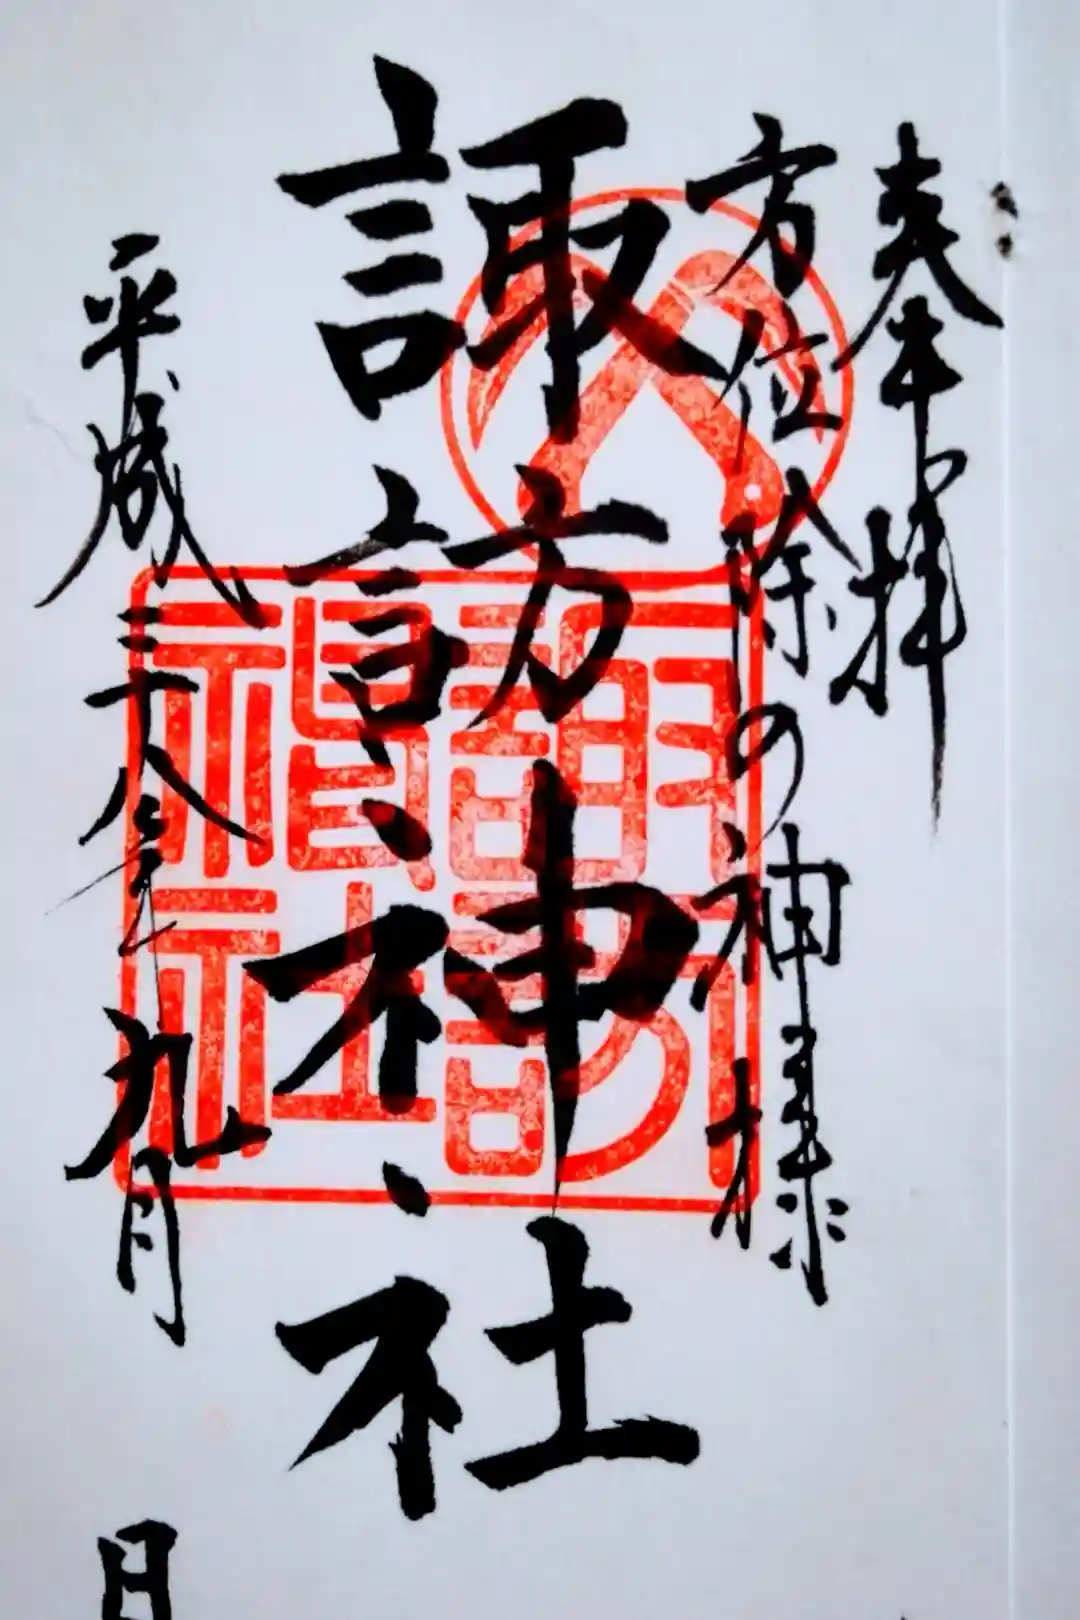 奉拝
方位除の神様
諏訪神社
平成二十八年九月 日
諏訪神社